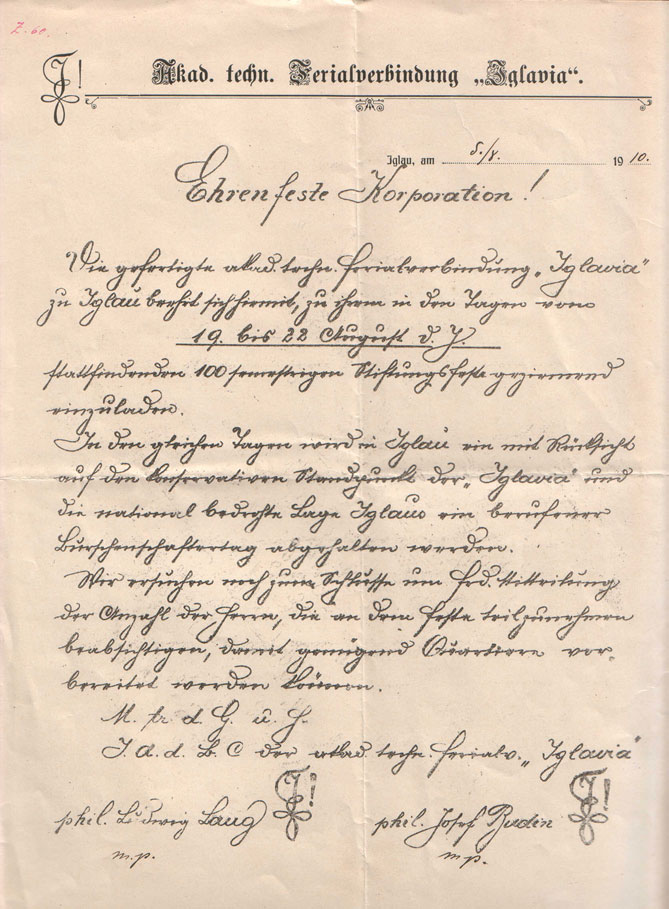 Z. 60.
J!
Akad. techn. Ferialverbindung „Iglavia“.
Iglau, am 5./8. 1910.
Ehrenfeste Korporation!
Die gefertigte akad. techn. Ferialverbindung „Iglavia“
zu Iglau beehrt sich hiermit, zu ihrem in den Tagen vom
19. bis 22 August d. J.
stattfindenden 100 semestrigen Stiftungsfeste geziemend
einzuladen.
In den gleichen Tagen wird in Iglau ein mit Rücksicht
auf den konservativen Standpunkt der „Iglavia“ und
die national bedrohte Lage Iglaus ein berufener
Burschenschaftertag abgehalten werden.
Wir ersuchen noch zum Schlusse um frd. Mitteilung
der Anzahl der Herren, die an dem Feste teilzunehmen
beabsichtigen, damit genügend Quartiere vor-
bereitet werden können.
M. fr. d. G. u. H.
I. A. d. B. C der akad. techn. Ferialv. „Iglavia“
phil. Ludwig Lang J! phil. Josef J!
m.p. m.p.